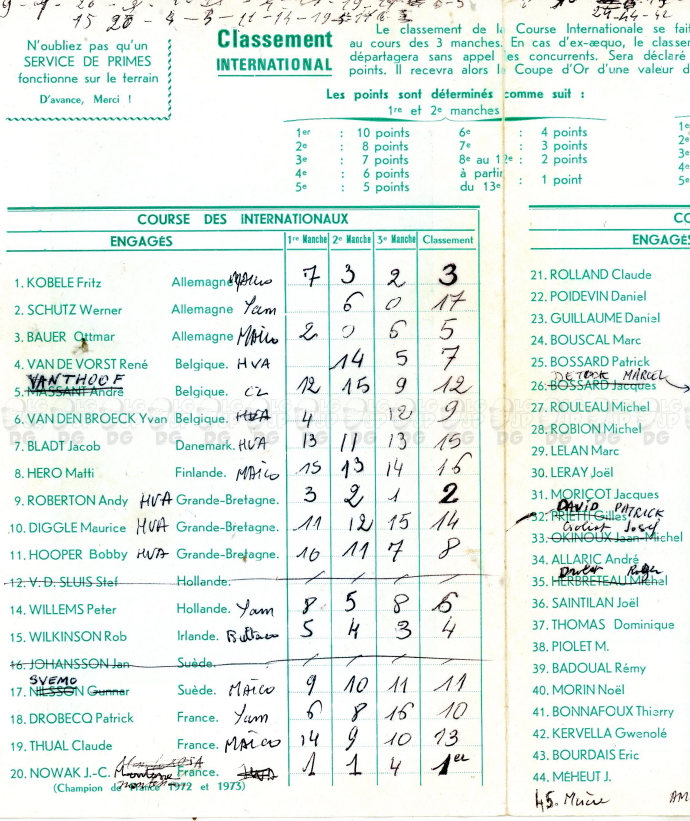 15 20 - 4 - 3 - 11 - 14 - 19
24-44-42
N'oubliez pas qu'un
SERVICE DE PRIMES
fonctionne sur le terrain
D'avance, Merci !
Classement
INTERNATIONAL
Le classement de la Course Internationale se fait
au cours des 3 manches. En cas d'ex-æquo, le classem
départagera sans appel les concurrents. Sera déclaré
points. Il recevra alors la Coupe d'Or d'une valeur d
Les points sont déterminés comme suit :
1re et 2e manches
1er : 10 points 6e : 4 points
2e : 8 points 7e : 3 points
3e : 7 points 8e au 12e : 2 points
4e : 6 points à partir
5e : 5 points du 13e : 1 point
1e
2e
3e
4e
5e
COURSE DES INTERNATIONAUX
ENGAGÉS 1re Manche 2e Manche 3e Manche Classement
1. KOBELE Fritz Allemagne MAICO 7 3 2 3
2. SCHUTZ Werner Allemagne Yam 6 0 17
3. BAUER Ottmar Allemagne MAICO 2 0 6 5
4. VAN DE VORST René Belgique. HVA 14 5 7
VANTHOOF
5. MASSANT André Belgique. CZ 12 15 9 12
6. VAN DEN BROECK Yvan Belgique. HVA 4 12 9
7. BLADT Jacob Danemark. HVA 13 11 13 15
8. HERO Matti Finlande. MAICO 15 13 14 16
9. ROBERTON Andy HVA Grande-Bretagne. 3 2 1 2
10. DIGGLE Maurice HVA Grande-Bretagne. 11 12 15 14
11. HOOPER Bobby HVA Grande-Bretagne. 10 11 7 8
12. V. D. SLUIS Stef Hollande. / / / /
14. WILLEMS Peter Hollande. Yam 8 5 8 6
15. WILKINSON Rob Irlande. Bultaco 5 4 3 4
16. JOHANSSON Jan Suède. / / / /
SVEMO
17. NILSSON Gunnar Suède. MAICO 9 10 11 11
18. DROBECQ Patrick France. Yam 6 8 16 10
19. THUAL Claude France. MAICO 14 9 10 13
20. NOWAK J.-C. Montesa France. HVA 1 1 4 1er
(Champion de France 1972 et 1973)
CO
ENGAGÉS
21. ROLLAND Claude
22. POIDEVIN Daniel
23. GUILLAUME Daniel
24. BOUSCAL Marc
25. BOSSARD Patrick
DETOCK MARCEL
26. BOSSARD Jacques
27. ROULEAU Michel
28. ROBION Michel
29. LELAN Marc
30. LERAY Joël
31. MORICOT Jacques
DAVID PATRICK
32. PRIETTI Gilles
Josef
33. OKINOUX Jean-Michel
34. ALLARIC André
Roger
35. HERBRETEAU Michel
36. SAINTILAN Joël
37. THOMAS Dominique
38. PIOLET M.
39. BADOUAL Rémy
40. MORIN Noël
41. BONNAFOUX Thierry
42. KERVELLA Gwenolé
43. BOURDAIS Eric
44. MÉHEUT J.
45. AM